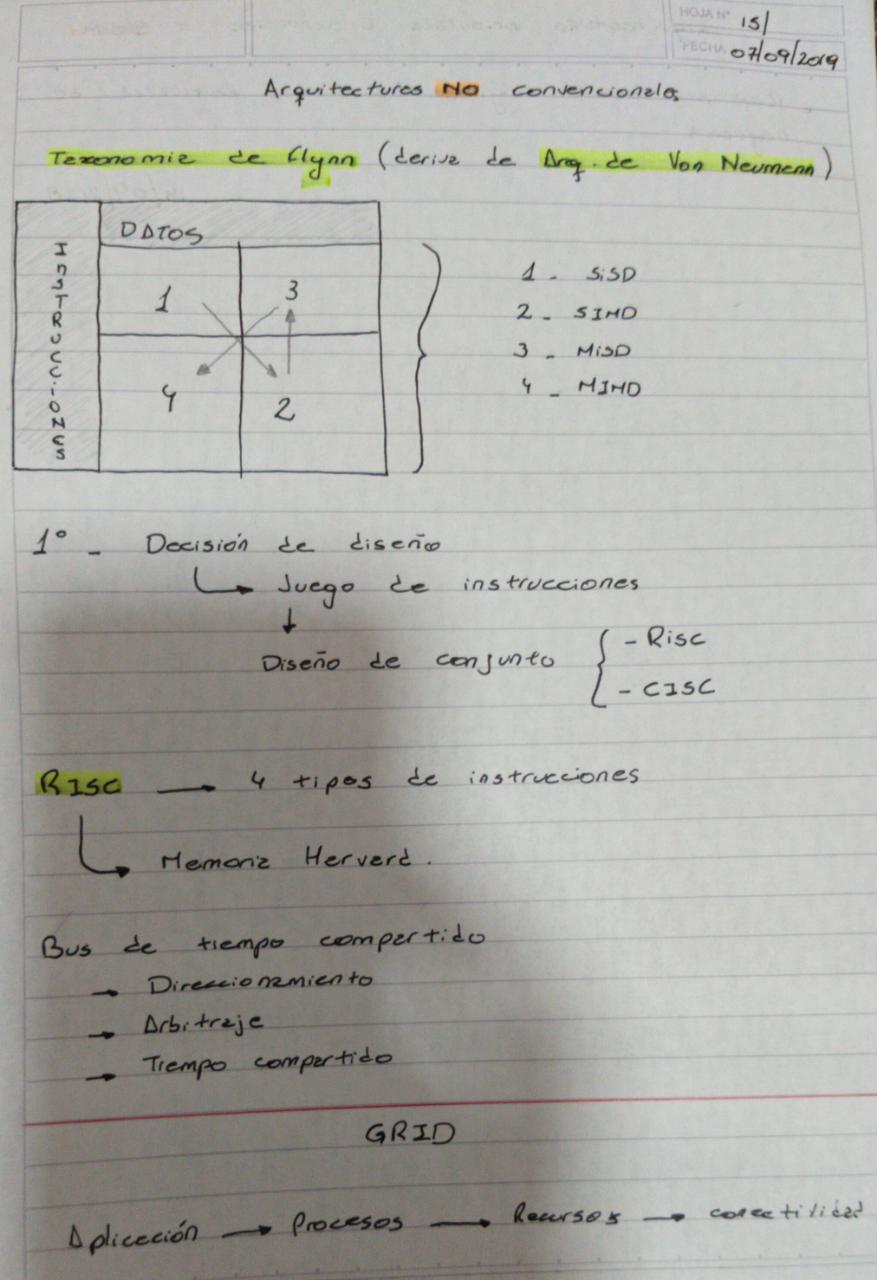 HOJA N° 15/
FECHA 07/09/2019
Arquitecturas NO convencionales
Taxonomia de Clynn (deriva de Arq. de Von Neumann)
DATOS
INSTRUCCIONES
1 3
4 2
1 - SISD
2 - SIMD
3 - MISD
4 - MIMD
1° - Decisión de diseño
Juego de instrucciones
Diseño de conjunto
- RISC
- CISC
RISC → 4 tipos de instrucciones
Memoria Harvard.
Bus de tiempo compartido
→ Direccionamiento
→ Arbitraje
→ Tiempo compartido
GRID
Aplicación → Procesos → Recursos →